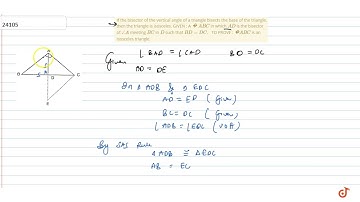 24105
If the bisector of the vertical angle of a triangle bisects the base of the triangle, then the triangle is isosceles. GIVEN : A # ABC in which AD is the bisector of ∠A meeting BC in D such that BD = DC. TO PROVE : # ABC is an isosceles triangle.
Given ∠BAD = ∠CAD BD = DC
AD = DE
In Δ ADB & Δ EDC
AD = ED ( Given )
BD = DC ( Given )
∠ADB = ∠EDC ( VOA )
By SAS Rule
Δ ADB ≅ Δ EDC
AB = EC